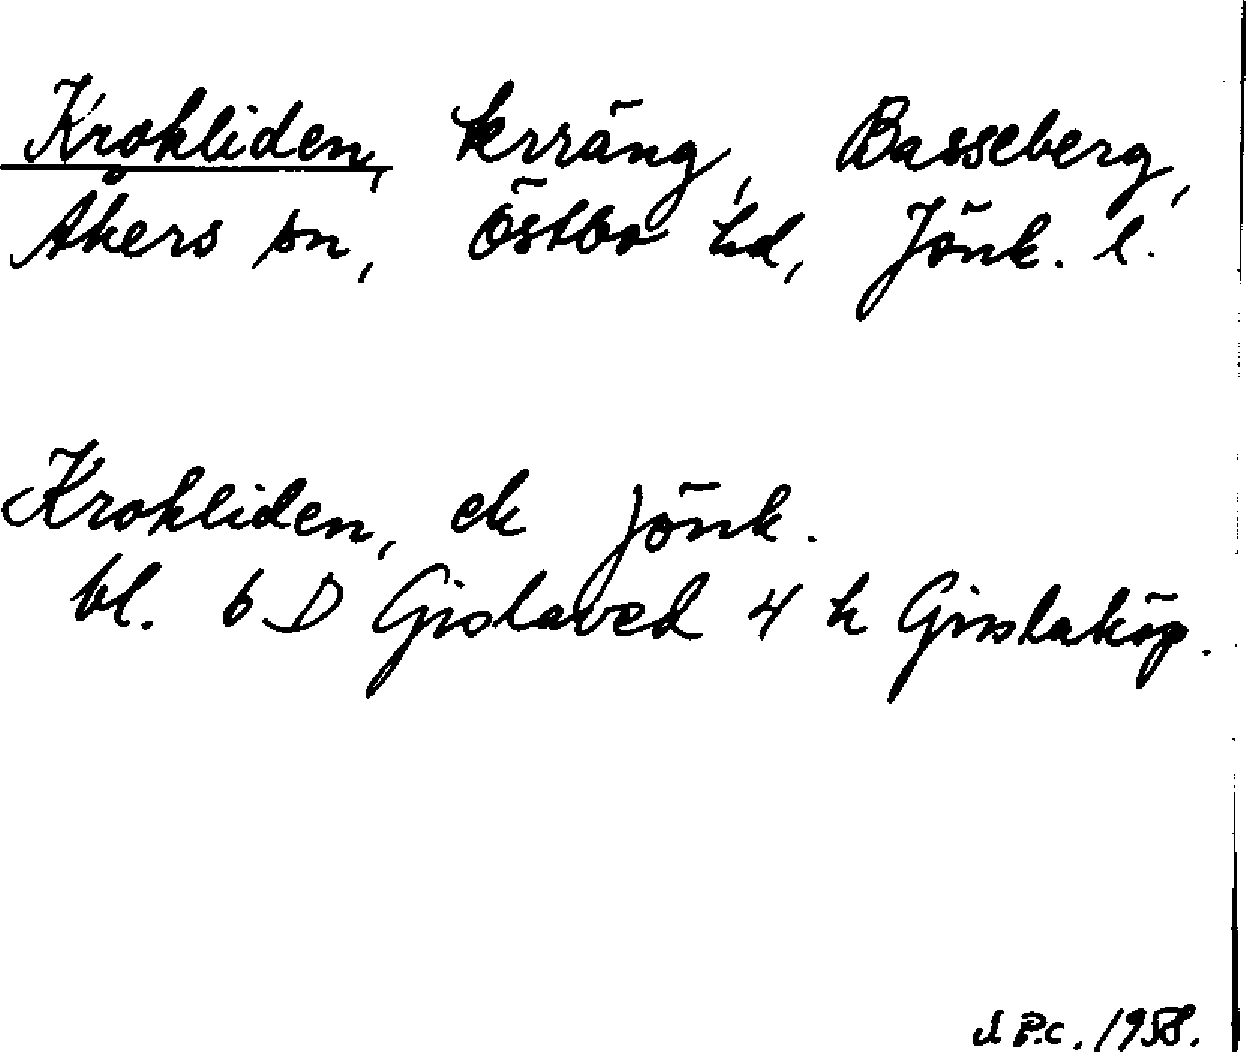 Krokliden, krräng, Basseberg,
Åkers sn, Östbo hd, Jönk. l.
Krokliden, ek Jönk.
bl. 6 D Gislaved 4 h Gustaköp.
J. P.C. 1958.